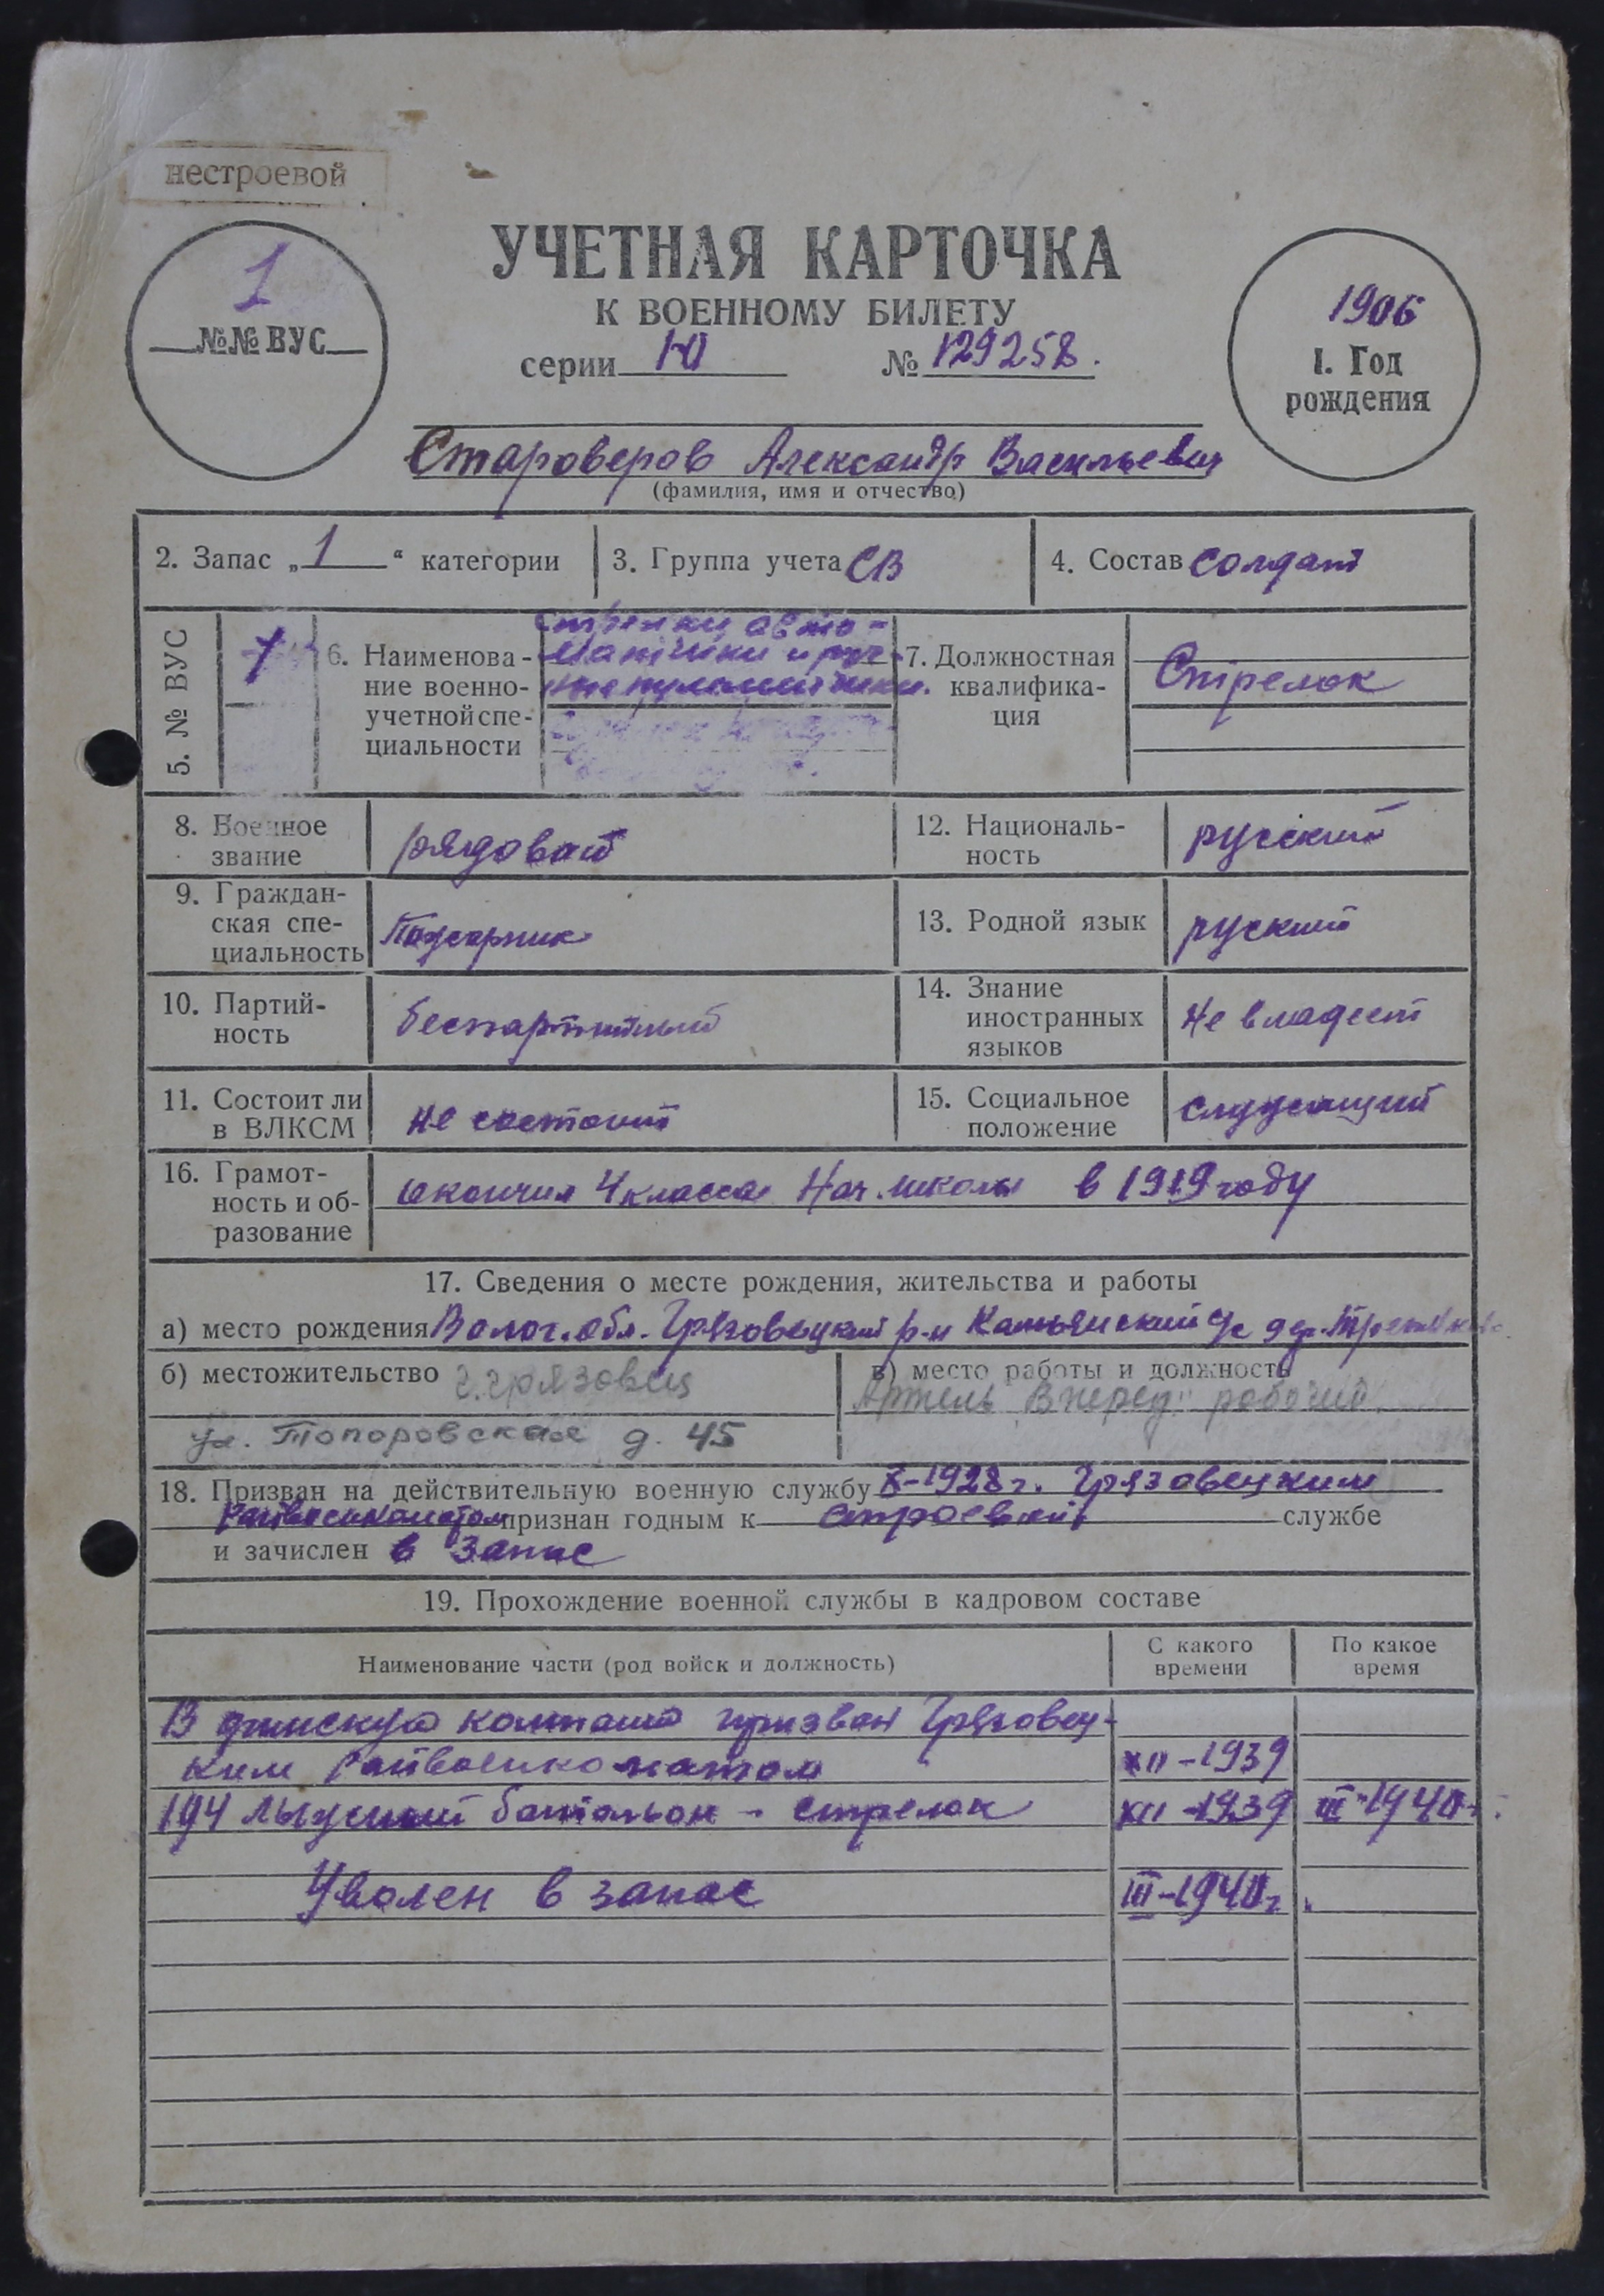 нестроевой
УЧЕТНАЯ КАРТОЧКА
К ВОЕННОМУ БИЛЕТУ
серии Ю № 129258.
1
№№ ВУС
1906
1. Год
рождения
Староверов Александр Васильевич
(фамилия, имя и отчество)
2. Запас „1“ категории
3. Группа учета СВ
4. Состав солдат
5. № ВУС
1
6. Наименова-
ние военно-
учетной спе-
циальности
Стрелки, авто-
матчики и руч-
ные пулеметчики.
7. Должностная
квалифика-
ция
Стрелок
8. Военное
звание
рядовой
12. Националь-
ность
русский
9. Граждан-
ская спе-
циальность
Пожарник
13. Родной язык
руский
10. Партий-
ность
беспартийный
14. Знание
иностранных
языков
не владеет
11. Состоит ли
в ВЛКСМ
не состоит
15. Социальное
положение
служащий
16. Грамот-
ность и об-
разование
окончил 4 класса Нач. школы в 1919 году
17. Сведения о месте рождения, жительства и работы
а) место рождения Волог. обл. Грязовецкий р-н с/с дер.
б) местожительство г. Грязовец
ул. Топоровская д. 45
в) место работы и должность
Артель „Вперед" рабочий.
18. Призван на действительную военную службу X-1928 г. Грязовецким
Райвоенкоматом признан годным к строевой службе
и зачислен в запас
19. Прохождение военной службы в кадровом составе
Наименование части (род войск и должность)
С какого
времени
По какое
время
В финскую компанию призван Грязовец-
ким Райвоенкоматом XII-1939
194 лыжный батальон - стрелок XII-1939 III-1940 г.
Уволен в запас III-1940 г.